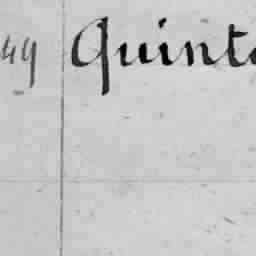 49 Quinto